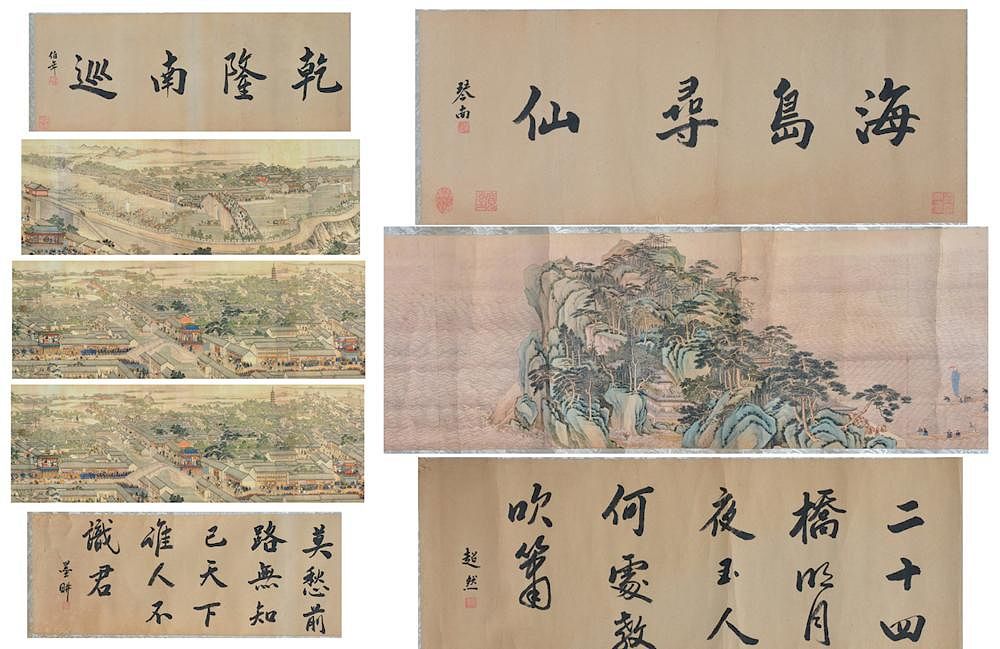 乾隆南巡
伯年
莫愁前
路無知
己天下
誰人不
識君
墨畊
海島尋仙
琴南
二十四
橋明月
夜玉人
何處教
吹簫
超然